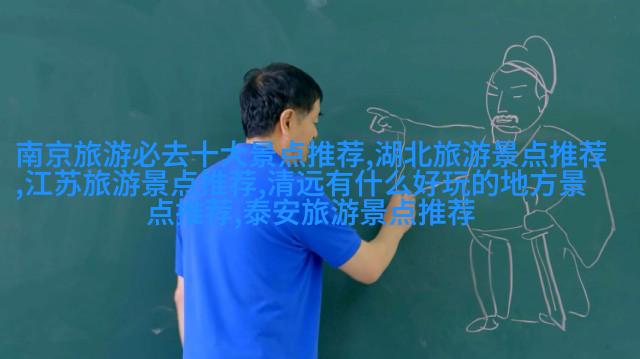 南京旅游必去十大景点推荐,湖北旅游景点推荐
,江苏旅游景点推荐,清远有什么好玩的地方景
点推荐,泰安旅游景点推荐